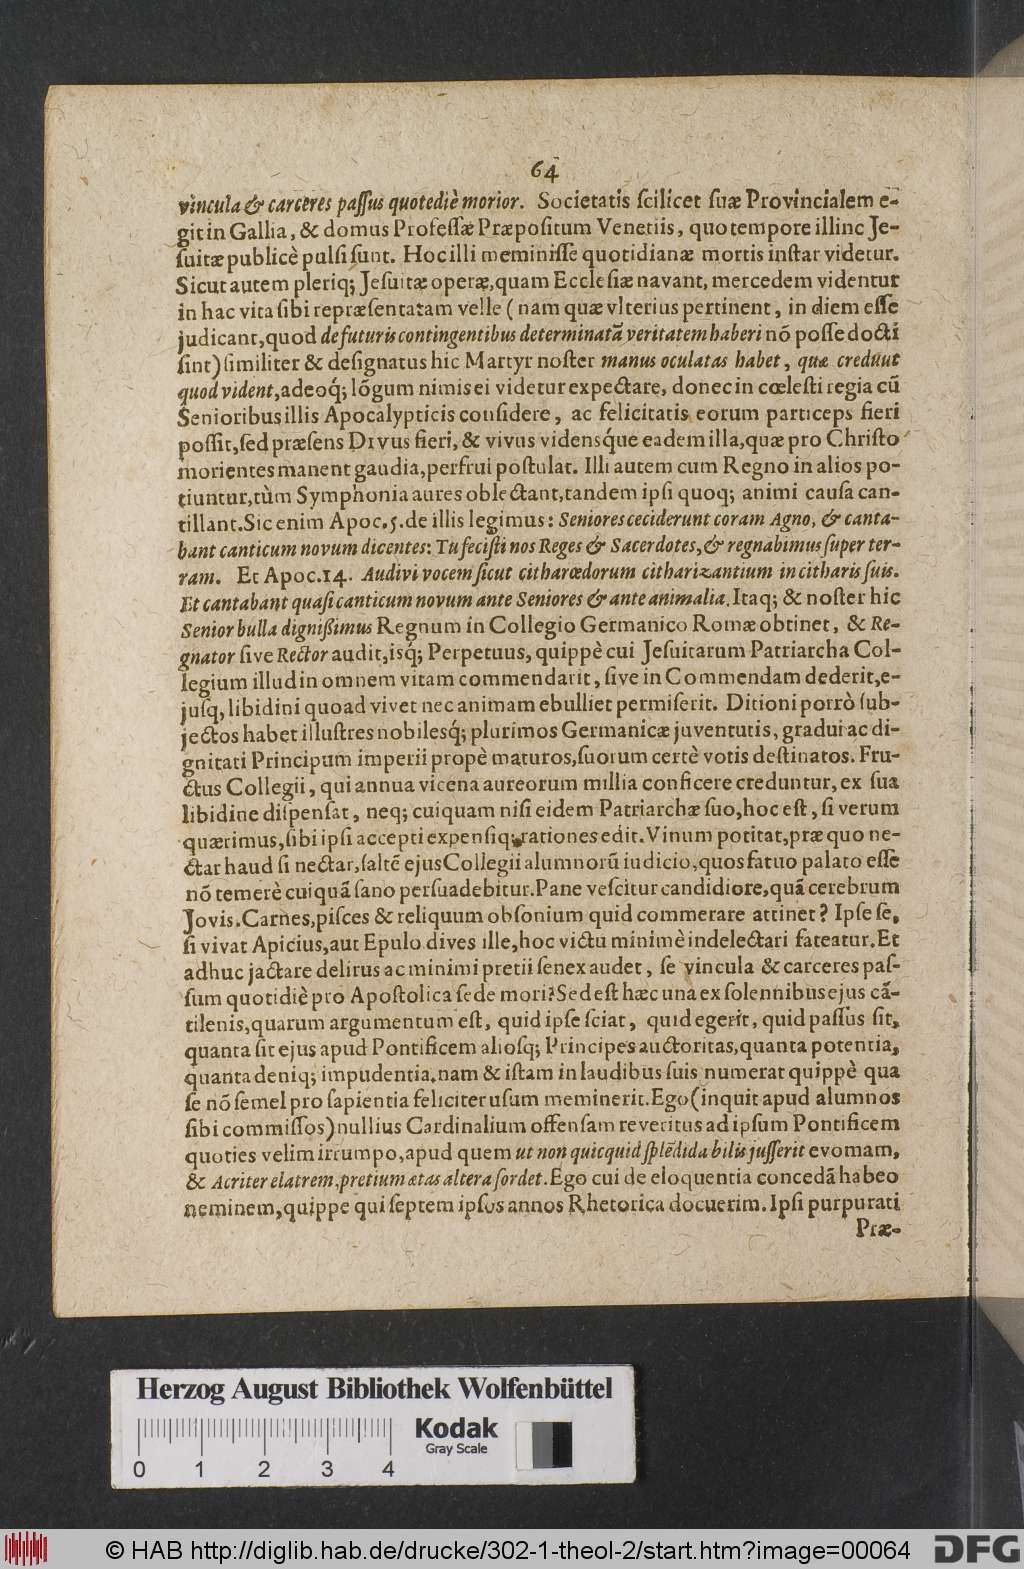 64
vincula & carceres paſſus quotediè morior. Societatis ſcilicet ſuæ Provincialem e-
git in Gallia, & domus Profeſſæ Præpoſitum Venetiis, quo tempore illinc Je-
ſuitæ publicè pulſi ſunt. Hoc illi meminiſſe quotidianæ mortis inſtar videtur.
Sicut autem pleriq; Jeſuitæ operæ, quam Eccleſiæ navant, mercedem videntur
in hac vita ſibi repræſentatam velle ( nam quæ vlterius pertinent, in diem eſſe
judicant, quod de futuris contingentibus determinatã veritatem haberi nõ poſſe docti
ſint) ſimiliter & deſignatus hic Martyr noſter manus oculatas habet, quæ credũut
quod vident, adeoq́; lõgum nimis ei videtur expectare, donec in cœleſti regia cũ
Senioribus illis Apocalypticis conſidere, ac felicitatis eorum particeps fieri
poſſit, ſed præſens Divus fieri, & vivus vidensq́ue eadem illa, quæ pro Chriſto
morientes manent gaudia, perfrui poſtulat. Illi autem cum Regno in alios po-
tiuntur, tùm Symphonia aures oblectant, tandem ipſi quoq; animi cauſa can-
tillant. Sic enim Apoc. 5. de illis legimus: Seniores ceciderunt coram Agno, & canta-
bant canticum novum dicentes: Tu feciſti nos Reges & Sacerdotes, & regnabimus ſuper ter-
ram. Et Apoc. 14. Audivi vocem ſicut citharœdorum citharizantium in citharis ſuis.
Et cantabant quaſi canticum novum ante Seniores & ante animalia. Itaq; & noſter hic
Senior bulla digniſſimus Regnum in Collegio Germanico Romæ obtinet, & Re-
gnator ſive Rector audit, isq́; Perpetuus, quippè cui Jeſuitarum Patriarcha Col-
legium illud in omnem vitam commendarit, ſive in Commendam dederit, e-
juſq, libidini quoad vivet nec animam ebulliet permiſerit. Ditioni porrò ſub-
jectos habet illuſtres nobilesq́; plurimos Germanicæ juventutis, gradui ac di-
gnitati Principum imperii propè maturos, ſuorum certè votis deſtinatos. Fru-
ctus Collegii, qui annua vicena aureorum millia conficere creduntur, ex ſua
libidine diſpenſat, neq; cuiquam niſi eidem Patriarchæ ſuo, hoc eſt, ſi verum
quærimus, ſibi ipſi accepti expenſiq; rationes edit. Vinum potitat, præ quo ne-
ctar haud ſi nectar, ſaltẽ ejus Collegii alumnorũ iudicio, quos fatuo palato eſſe
nõ temerè cuiquã ſano perſuadebitur. Pane veſcitur candidiore, quã cerebrum
Jovis. Carnes, piſces & reliquum obſonium quid commerare attinet? Ipſe ſe,
ſi vivat Apicius, aut Epulo dives ille, hoc victu minimè indelectari fateatur. Et
adhuc jactare delirus ac minimi pretii ſenex audet, ſe vincula & carceres paſ-
ſum quotidiè pro Apoſtolica ſede mori? Sed eſt hæc una ex ſolennibus ejus cã-
tilenis, quarum argumentum eſt, quid ipſe ſciat, quid egerit, quid paſſus ſit,
quanta ſit ejus apud Pontificem aliosq; Principes auctoritas, quanta potentia,
quanta deniq; impudentia. nam & iſtam in laudibus ſuis numerat quippè qua
ſe nõ ſemel pro ſapientia feliciter uſum meminerit. Ego (inquit apud alumnos
ſibi commiſſos) nullius Cardinalium offenſam reveritus ad ipſum Pontificem
quoties velim irrumpo, apud quem ut non quicquid ſplẽdida bilis juſſerit evomam,
& Acriter elatrem, pretium ætas altera ſordet. Ego cui de eloquentia concedã habeo
neminem, quippe qui ſeptem ipſos annos Rhetorica docuerim. Ipſi purpurati
Præ-
Herzog August Bibliothek Wolfenbüttel
Kodak
Gray Scale
0 1 2 3 4
© HAB http://diglib.hab.de/drucke/302-1-theol-2/start.htm?image=00064
DFG